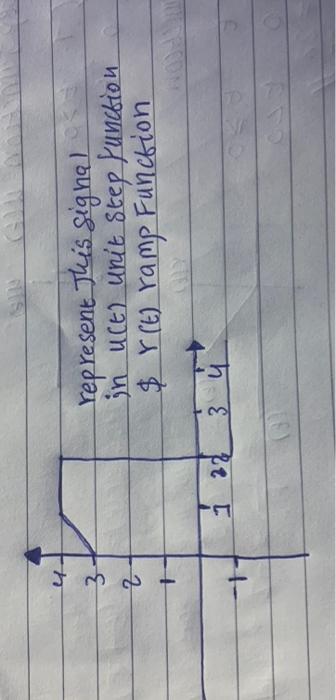 represent This signal
in u(t) unit step function
$ r(t) ramp Function
4
3
2
1
-1
1 2 3 4